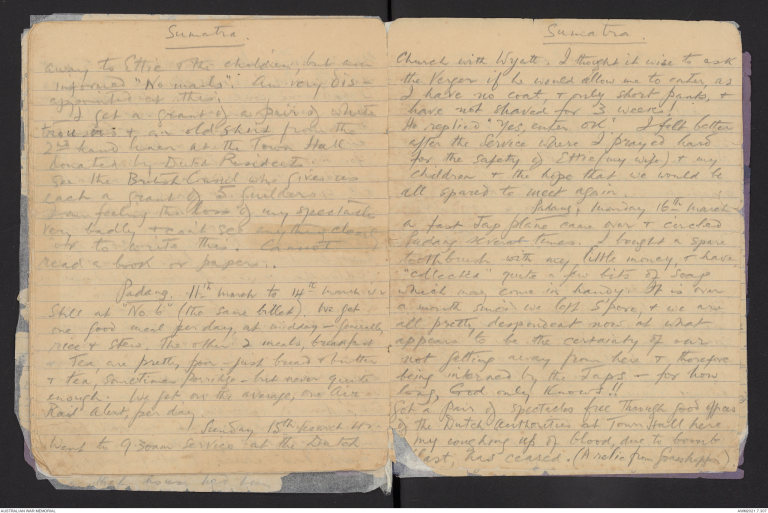 Sumatra.
away to Ettie & the children, but am
informed "No mails". Am very dis-
appointed at this.
I get a grant of a pair of white
trousers & an old shirt from the
2nd hand linen at the Town Hall
donated by Dutch Residents.
See the British Consul who gives us
each a grant of 5 guilders.
I am feeling the loss of my spectacles
very badly & can't see anything close
or to write this. Cannot
read a book or papers.
Padang, 11th March to 14th March
Still at "No. 6" (the same billet). We get
one good meal per day, at midday - generally
rice & stew. The other 2 meals, breakfast
& Tea, are pretty poor - just bread & butter
& tea, sometimes porridge - but never quite
enough. We get on the average, one Air-
Raid Alert, per day.
Sunday 15th March
Went to 9.30am Service at the Dutch
Sumatra.
Church with Wyatt. I thought it wise to ask
the Verger if he would allow me to enter, as
I have no coat, & only short pants, &
have not shaved for 3 weeks.
He replied "Yes, enter, OK". I felt better
after the Service where I prayed hard
for the safety of Ettie (my wife) & my
children & the hope that we would be
all spared to meet again.
Padang, Monday 16th March
a fast Jap plane came over & circled
Padang several times. I bought a spare
toothbrush with my little money, & have
"collected" quite a few bits of soap
which may come in handy. It is over
a month since we left S'pore, & we are
all pretty despondent now at what
appears to be the certainty of our
not getting away from here & therefore
being interned by the Japs - for how
long, God only knows!!
Get a pair of spectacles free through good offices
of the Dutch authorities at Town Hall here
my coughing up of blood, due to bomb
blast, has ceased. (A relic from Grasshopper)
AUSTRALIAN WAR MEMORIAL
AWM2021.7.307